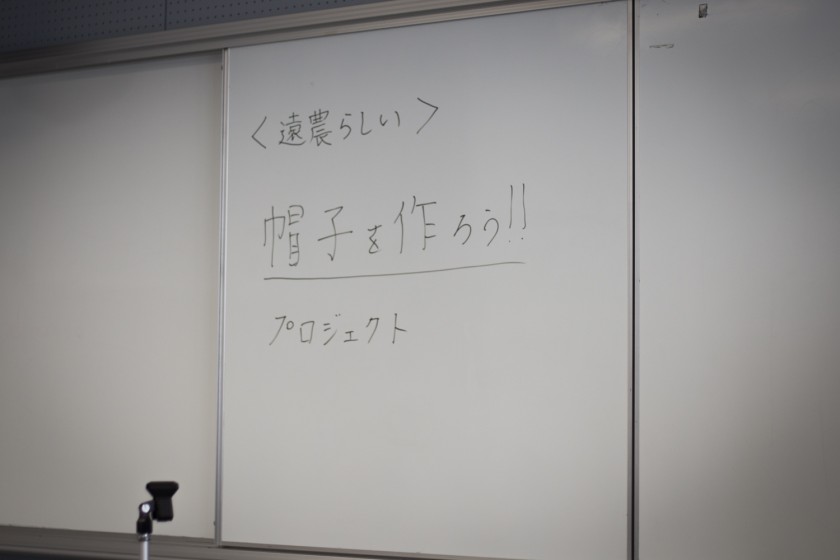 <遠農らしい>
帽子を作ろう!!
プロジェクト